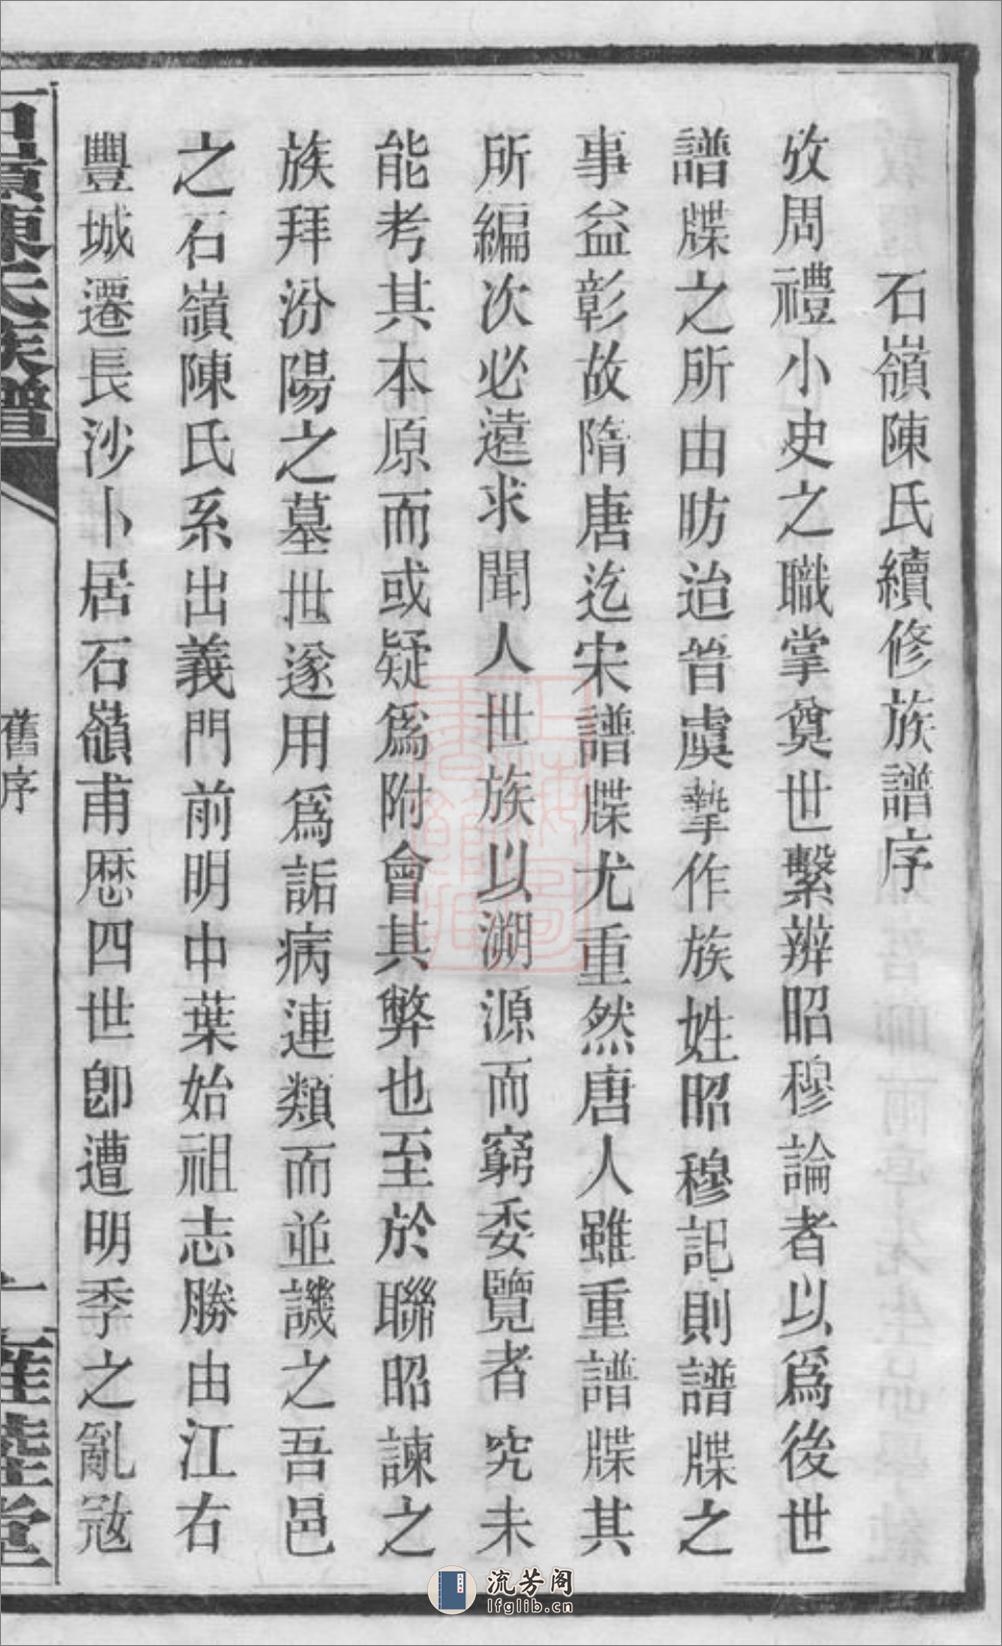 石嶺陳氏續修族譜序
攷周禮小史之職掌奠世繫辨昭穆論者以爲後世
譜牒之所由昉迨晉虞摯作族姓昭穆記則譜牒之
事益彰故隋唐迄宋譜牒尤重然唐人雖重譜牒其
所編次必遠求聞人世族以溯源而窮委覽者究未
能考其本原而或疑爲附會其弊也至於聯昭諫之
族拜汾陽之墓世遂用爲詬病連類而並譏之吾邑
之石嶺陳氏系出義門前明中葉始祖志勝由江右
豐城遷長沙卜居石嶺甫歴四世卽遭明季之亂冦
石嶺陳氏族譜
舊序
一
流芳阁
lfglib.cn